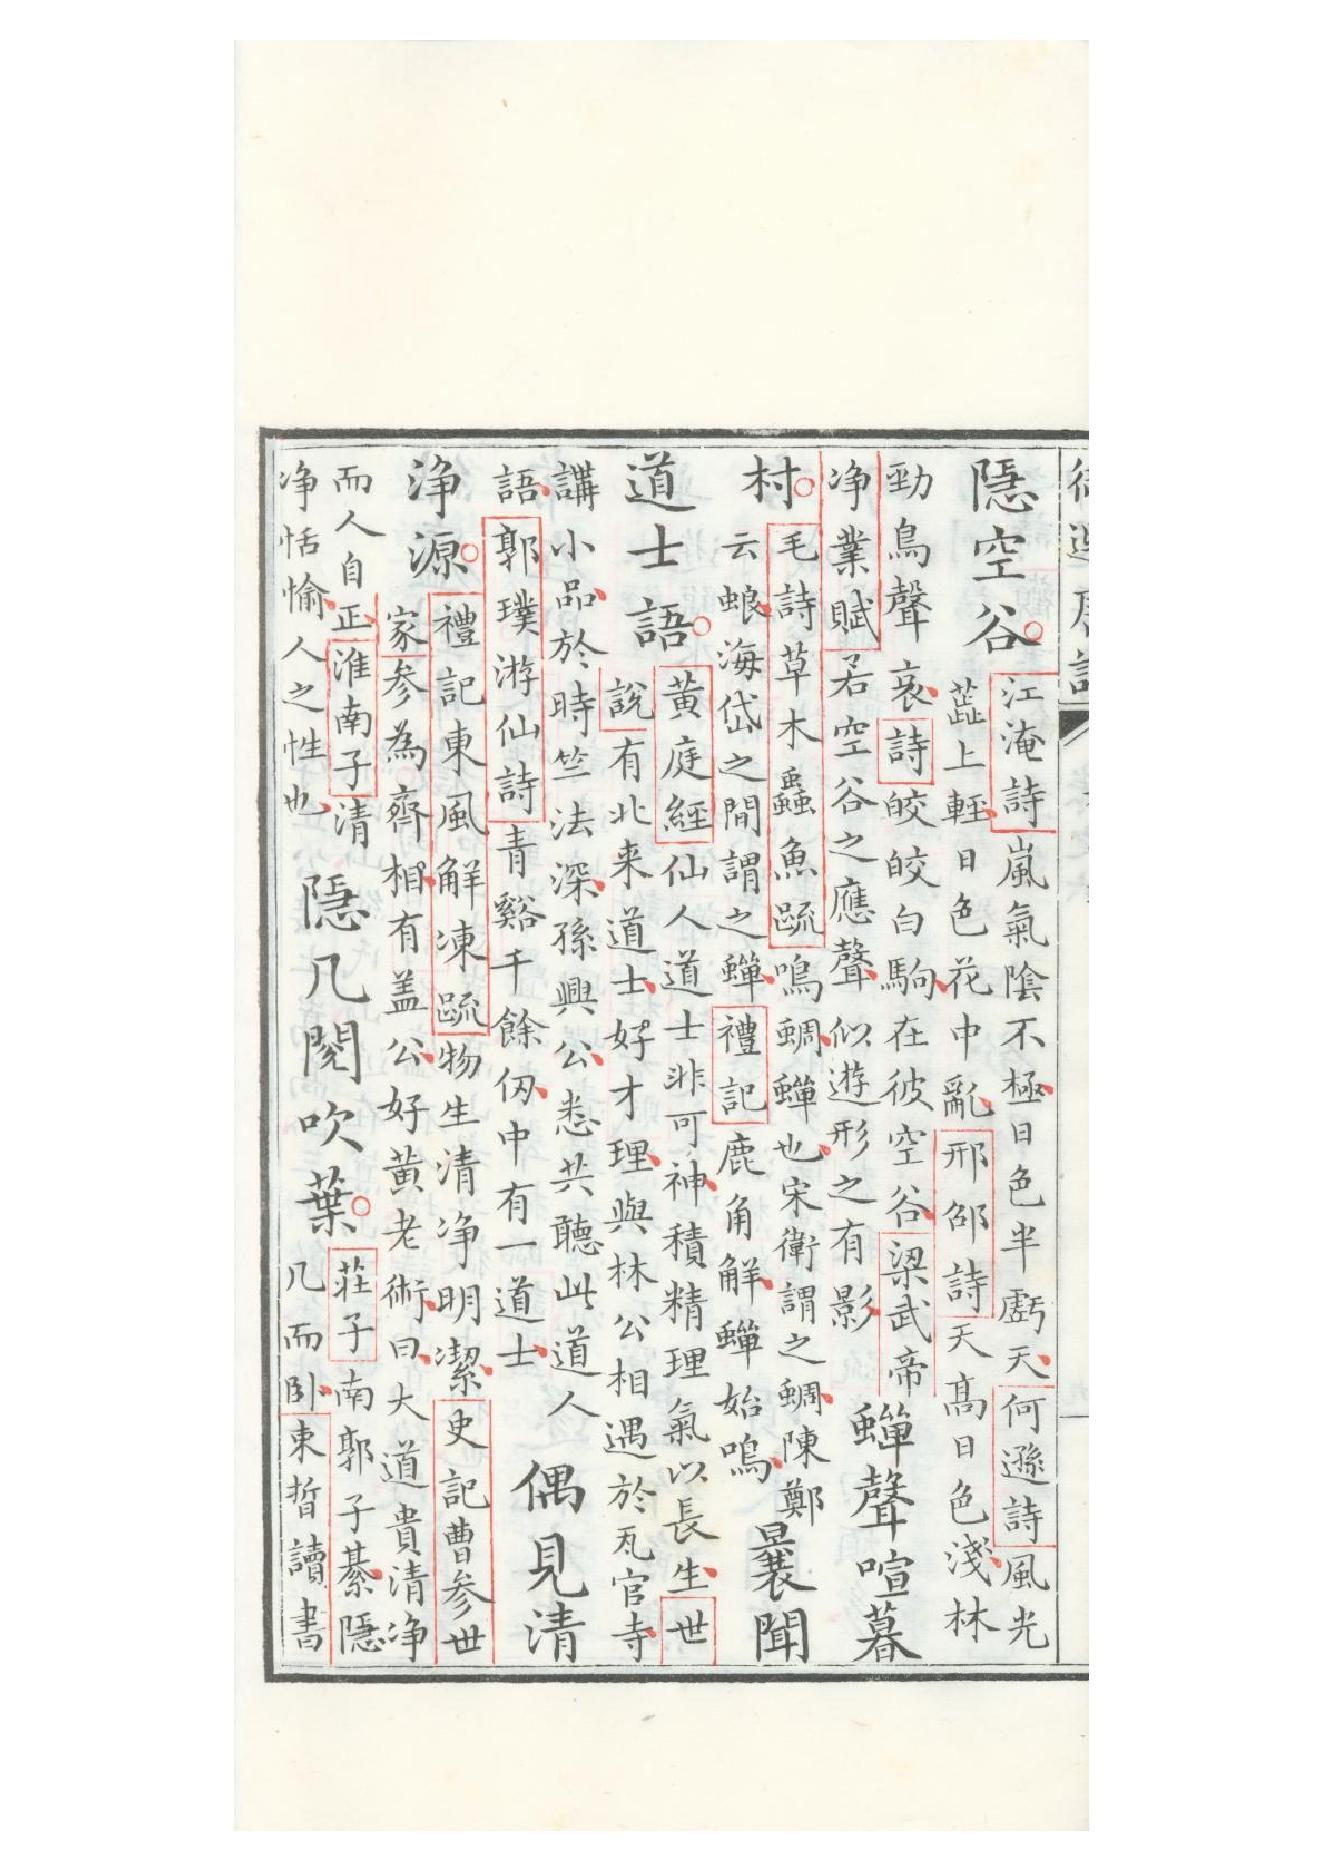 隱空谷
江淹詩嵐氣陰不極日色半虧天何遜詩風光
蕋上輕日色花中亂邢邵詩天高日色淺林
勁鳥聲哀詩皎皎白駒在彼空谷梁武帝
净業賦若空谷之應聲似遊形之有影
蟬聲喧暮
村
毛詩草木蟲魚疏鳴蜩蟬也宋衛謂之蜩陳鄭
云蜋海岱之間謂之蟬禮記鹿角解蟬始鳴
曩聞
道士語
黃庭經仙人道士非可神積精理氣以長生世
說有北来道士好才理與林公相遇於瓦官寺
講小品於時竺法深孫興公悉共聽此道人
語郭璞游仙詩青谿千餘仞中有一道士
偶見清
净源
禮記東風解凍疏物生清净明潔史記曹参世
家参為齊相有盖公好黃老術曰大道貴清净
而人自正淮南子清
净恬愉人之性也
隱几閱吹葉
莊子南郭子綦隱
几而卧束晳讀書